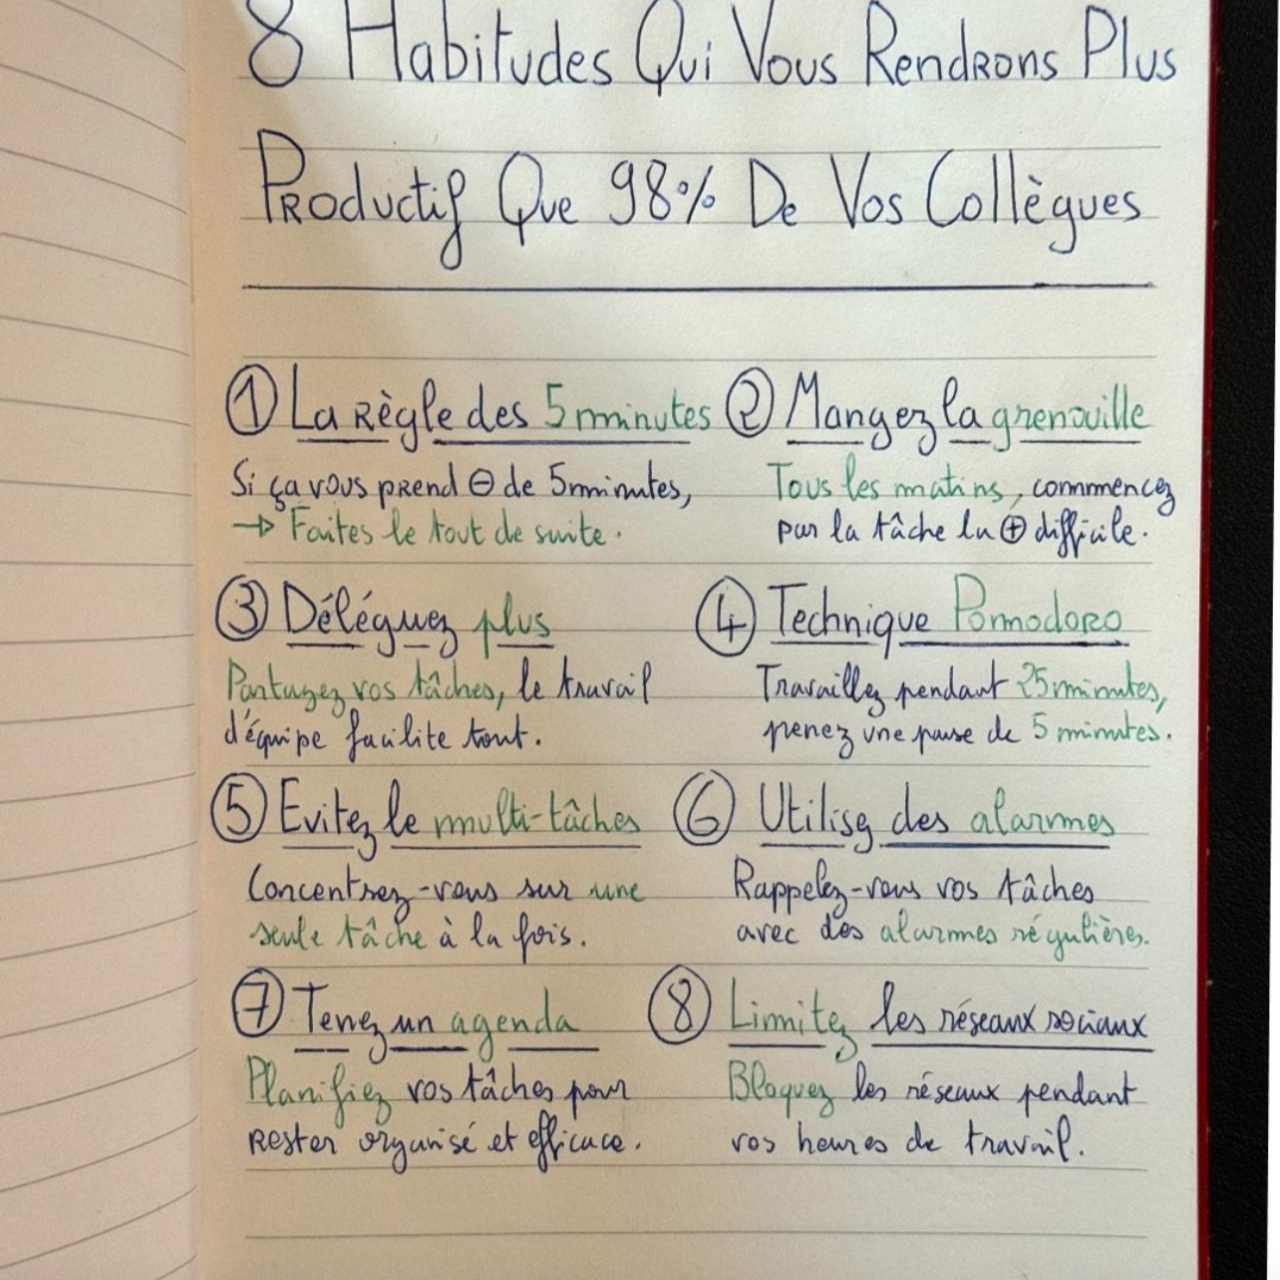 8 Habitudes Qui Vous Rendrons Plus
Productif Que 98% De Vos Collègues
① La Règle des 5 minutes
Si ça vous prend ⊖ de 5 minutes,
→ Faites le tout de suite.
② Mangez la grenouille
Tous les matins, commencez
par la tâche la ⊕ difficile.
③ Déléguez plus
Partagez vos tâches, le travail
d'équipe facilite tout.
④ Technique Pomodoro
Travaillez pendant 25 minutes,
penez une pause de 5 minutes.
⑤ Evitez le multi-tâches
Concentrez-vous sur une
seule tâche à la fois.
⑥ Utilisez des alarmes
Rappelez-vous vos tâches
avec des alarmes régulières.
⑦ Tenez un agenda
Planifiez vos tâches pour
rester organisé et efficace.
⑧ Limitez les réseaux sociaux
Bloquez les réseaux pendant
vos heures de travail.